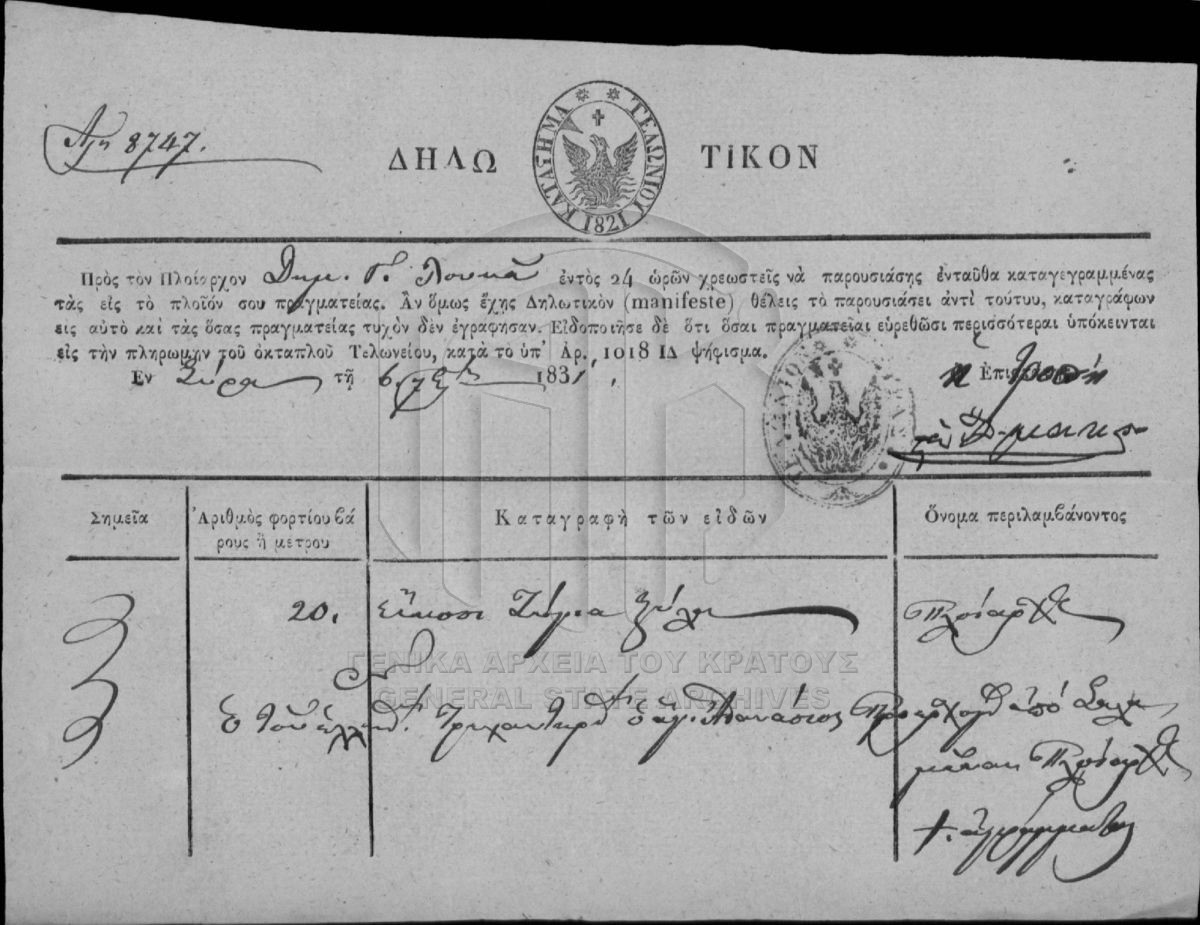 Αρ 8747.
ΔΗΛΩ ΤΙΚΟΝ
ΚΑΤΑΣΤΗΜΑ ΤΕΛΩΝΙΟΥ 1821
Πρὸς τὸν Πλοίαρχον Δημ. Γ. Λουκᾶ ἐντὸς 24 ὡρῶν χρεωστεῖς νὰ παρουσιάσῃς ἐνταῦθα καταγεγραμμένας
τὰς εἰς τὸ πλοῖόν σου πραγματείας. Ἂν ὅμως ἔχῃς Δηλωτικὸν (manifeste) θέλεις τὸ παρουσιάσει ἀντὶ τούτυ, καταγράφων
εἰς αὐτὸ καὶ τὰς ὅσας πραγματείας τυχὸν δὲν ἐγράφησαν. Εἰδοποιήσε δὲ ὅτι ὅσαι πραγματεῖαι εὑρεθῶσι περισσότεραι ὑπόκεινται
εἰς τὴν πληρωμὴν τοῦ ὀκταπλοῦ Τελωνείου, κατὰ τὸ ὑπ' Ἀρ. 1018 ΙΔ ψήφισμα.
Ἐν Σύρα τῇ 6 7βρ 1831
Σημεῖα
Ἀριθμὸς φορτίου βά
ρους ἢ μετρου
Καταγραφὴ τῶν εἰδῶν
Ὄνομα περιλαμβάνοντος
20. εἴκοσι ζύγια ξύλα πλοίαρχος
ὁ ἁγ. Ἀθανάσιος προερχομ ἀπὸ
πλοίαρχος
ἀγράμματος
ΓΕΝΙΚΑ ΑΡΧΕΙΑ ΤΟΥ ΚΡΑΤΟΥΣ
GENERAL STATE ARCHIVES